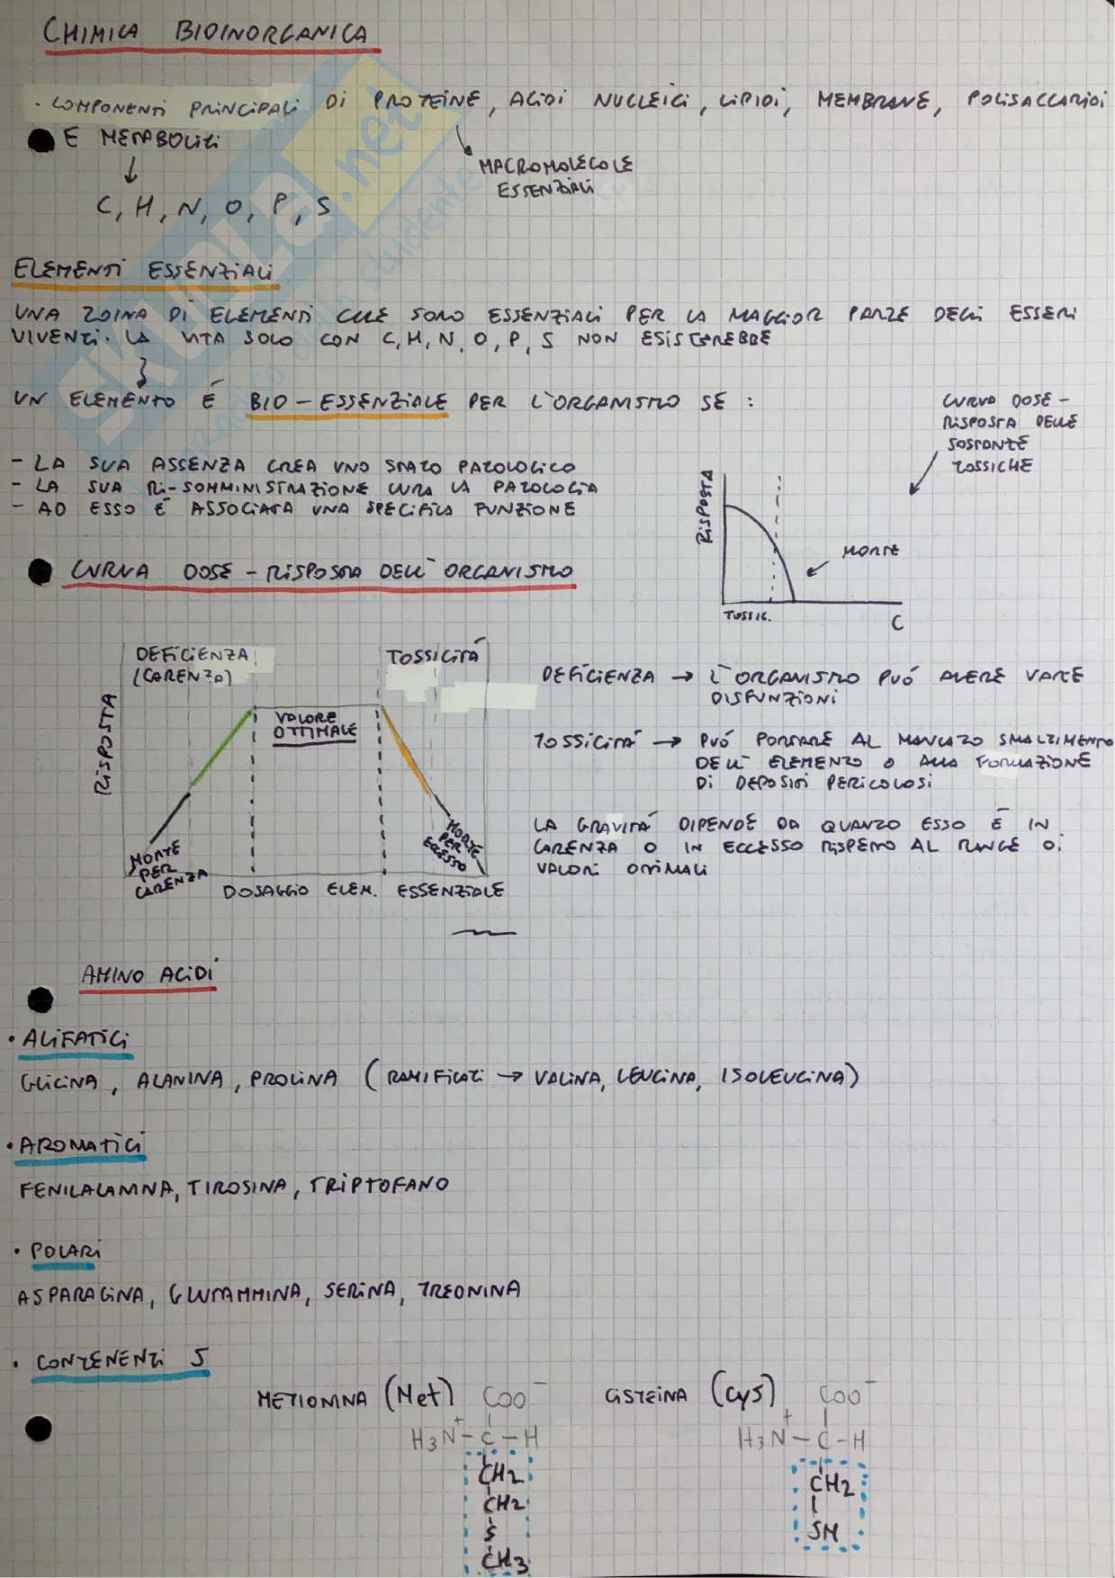 CHIMICA BIOINORGANICA
. COMPONENTI PRINCIPALI DI PROTEINE, ACIDI NUCLEICI, LIPIDI, MEMBRANE, POLISACCARIDI
E METABOLITI
MACROMOLECOLE
ESSENZIALI
C, H, N, O, P, S
SKUOLA.net
ELEMENTI ESSENZIALI
UNA ZOINA DI ELEMENTI CHE SONO ESSENZIALI PER LA MAGGIOR PARTE DEGLI ESSERI
VIVENTI. LA VITA SOLO CON C, H, N, O, P, S NON ESISTEREBBE
UN ELEMENTO É BIO-ESSENZIALE PER L'ORGANISMO SE :
- LA SUA ASSENZA CREA UNO STATO PATOLOGICO
- LA SUA RI-SOMMINISTRAZIONE CURA LA PATOLOGIA
- AD ESSO É ASSOCIATA UNA SPECIFICA FUNZIONE
CURVA DOSE-
RISPOSTA DELLE
SOSTANZE
TOSSICHE
RISPOSTA
MORTE
TOSSIC.
C
CURVA DOSE-RISPOSTA DELL'ORGANISMO
DEFICIENZA
(CARENZA)
TOSSICITÁ
VALORE
OTTIMALE
RISPOSTA
MORTE
PER
CARENZA
MORTE
PER
ECCESSO
DOSAGGIO ELEM. ESSENZIALE
DEFICIENZA → L'ORGANISMO PUÓ AVERE VARIE
DISFUNZIONI
TOSSICITÁ → PUÓ PORTARE AL MANCATO SMALTIMENTO
DELL'ELEMENTO O ALLA FORMAZIONE
DI DEPOSITI PERICOLOSI
LA GRAVITÁ DIPENDE DA QUANTO ESSO É IN
CARENZA O IN ECCESSO RISPETTO AL RANGE DI
VALORI OTTIMALI
AMINO ACIDI
• ALIFATICI
GLICINA, ALANINA, PROLINA (RAMIFICATI → VALINA, LEUCINA, ISOLEUCINA)
• AROMATICI
FENILALANINA, TIROSINA, TRIPTOFANO
• POLARI
ASPARAGINA, GLUTAMMINA, SERINA, TREONINA
• CONTENENTI S
METIONINA (Met) COO⁻
H3N⁺-C-H
CH2
CH2
S
CH3
CISTEINA (Cys) COO⁻
H3N⁺-C-H
CH2
SH